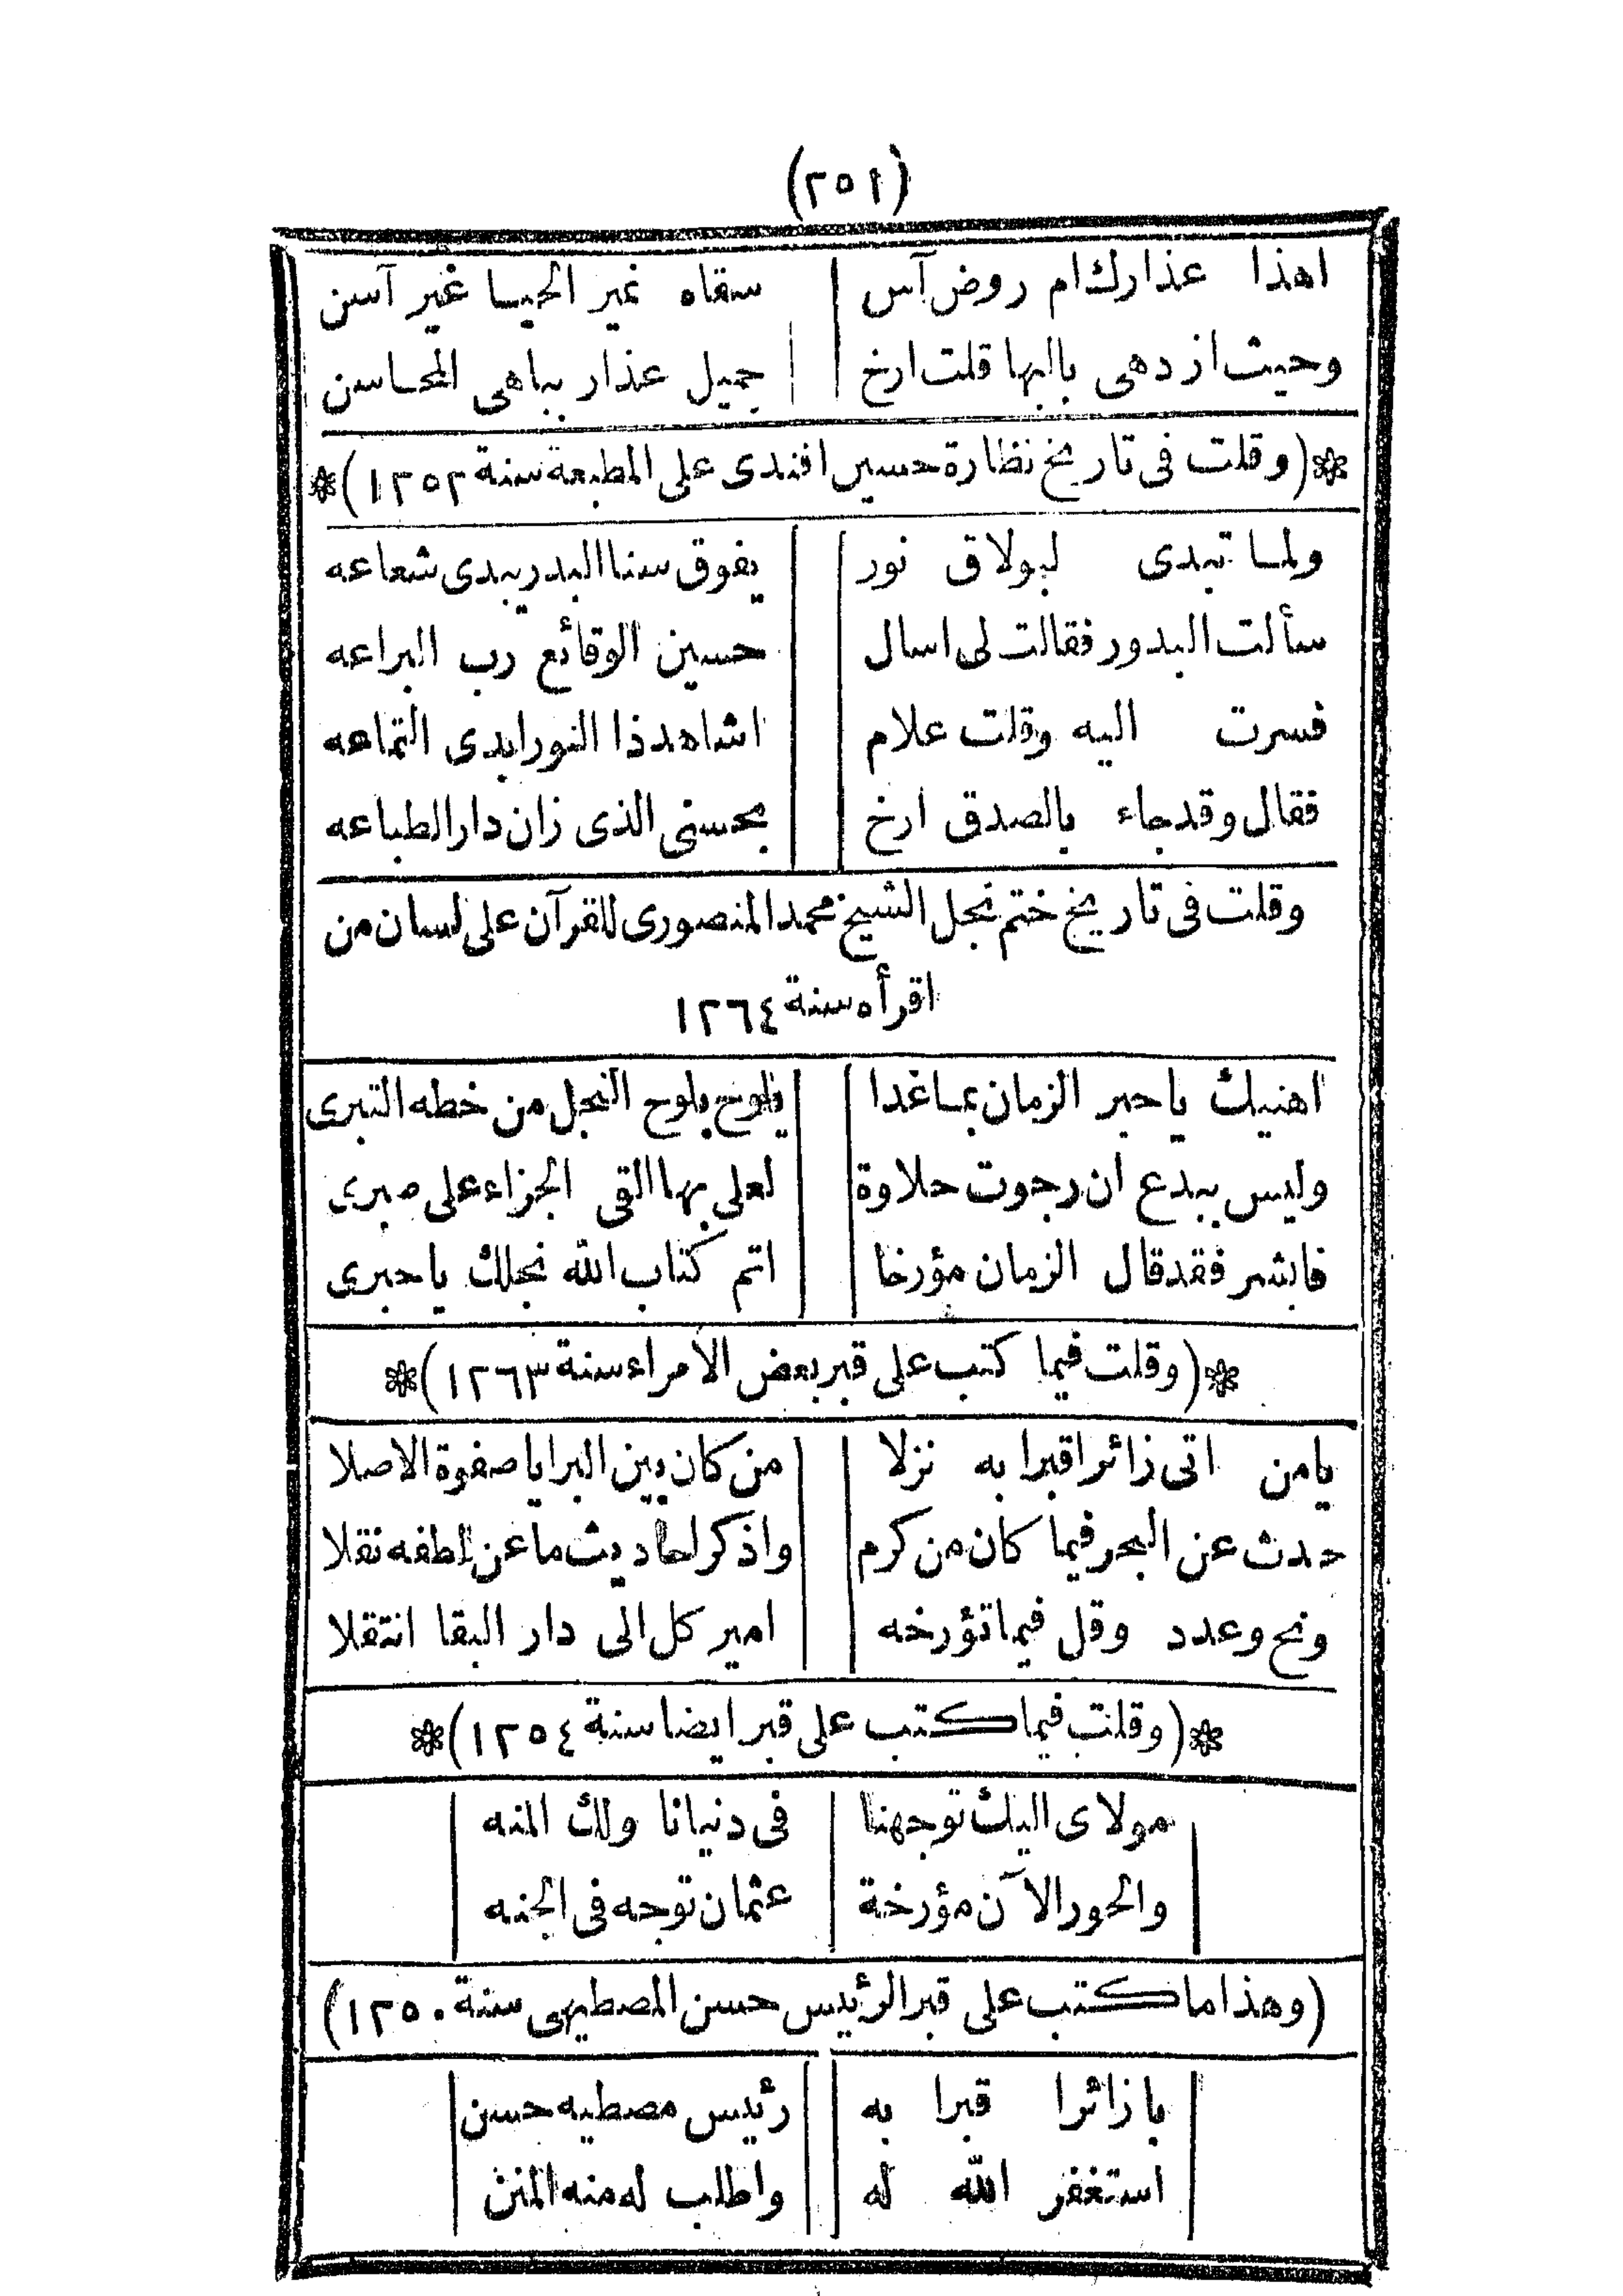 (٢٥١)
اهذا عذارك ام روض آس سقاه نمير الحيا غير آسن
وحيث ازدهى بالبها قلت ارخ جميل عذار يباهى المحاسن
❊(وقلت فى تاريخ نظارة حسين افندى على المطبعة سنة ١٢٥٢)❊
ولما تبدى لبولاق نور يفوق سنا البدر يبدى شعاعه
سألت البدور فقالت لى اسال حسين الوقائع رب البراعه
فسرت اليه وقلت علام اشاهد ذا النور ابدى التماعه
فقال وقد جاء بالصدق ارخ بحسنى الذى زان دار الطباعه
وقلت فى تاريخ ختم نجل الشيخ محمد المنصورى للقرآن على لسان من
اقرأه سنة ١٢٦٤
اهنيك يا حبر الزمان بما غدا يلوح بلوح النجل من خطه التبرى
وليس ببدع ان رجوت حلاوة لعلى بها القى الجزاء على صبرى
فابشر فقد قال الزمان مؤرخا اتم كتاب الله نجلك يا حبرى
❊(وقلت فيما كتب على قبر بعض الأمراء سنة ١٢٦٣)❊
يامن اتى زائرا قبرا به نزلا من كان بين البرايا صفوة الاصلا
حدث عن البحر فيما كان من كرم واذكر احاديث ما عن لطفه نقلا
ونح وعدد وقل فيما تؤرخه امير كل الى دار البقا انتقلا
❊(وقلت فيما كتب على قبر ايضا سنة ١٢٥٤)❊
مولاى اليك توجهنا فى دنيانا ولك المنه
والحور الآن مؤرخة عثمان توجه فى الجنه
(وهذا ما كتب على قبر الرئيس حسن المصطيهى سنة ١٢٥٠)
يا زائرا قبرا به رئيس مصطيه حسن
استغفر الله له واطلب له منه المنن